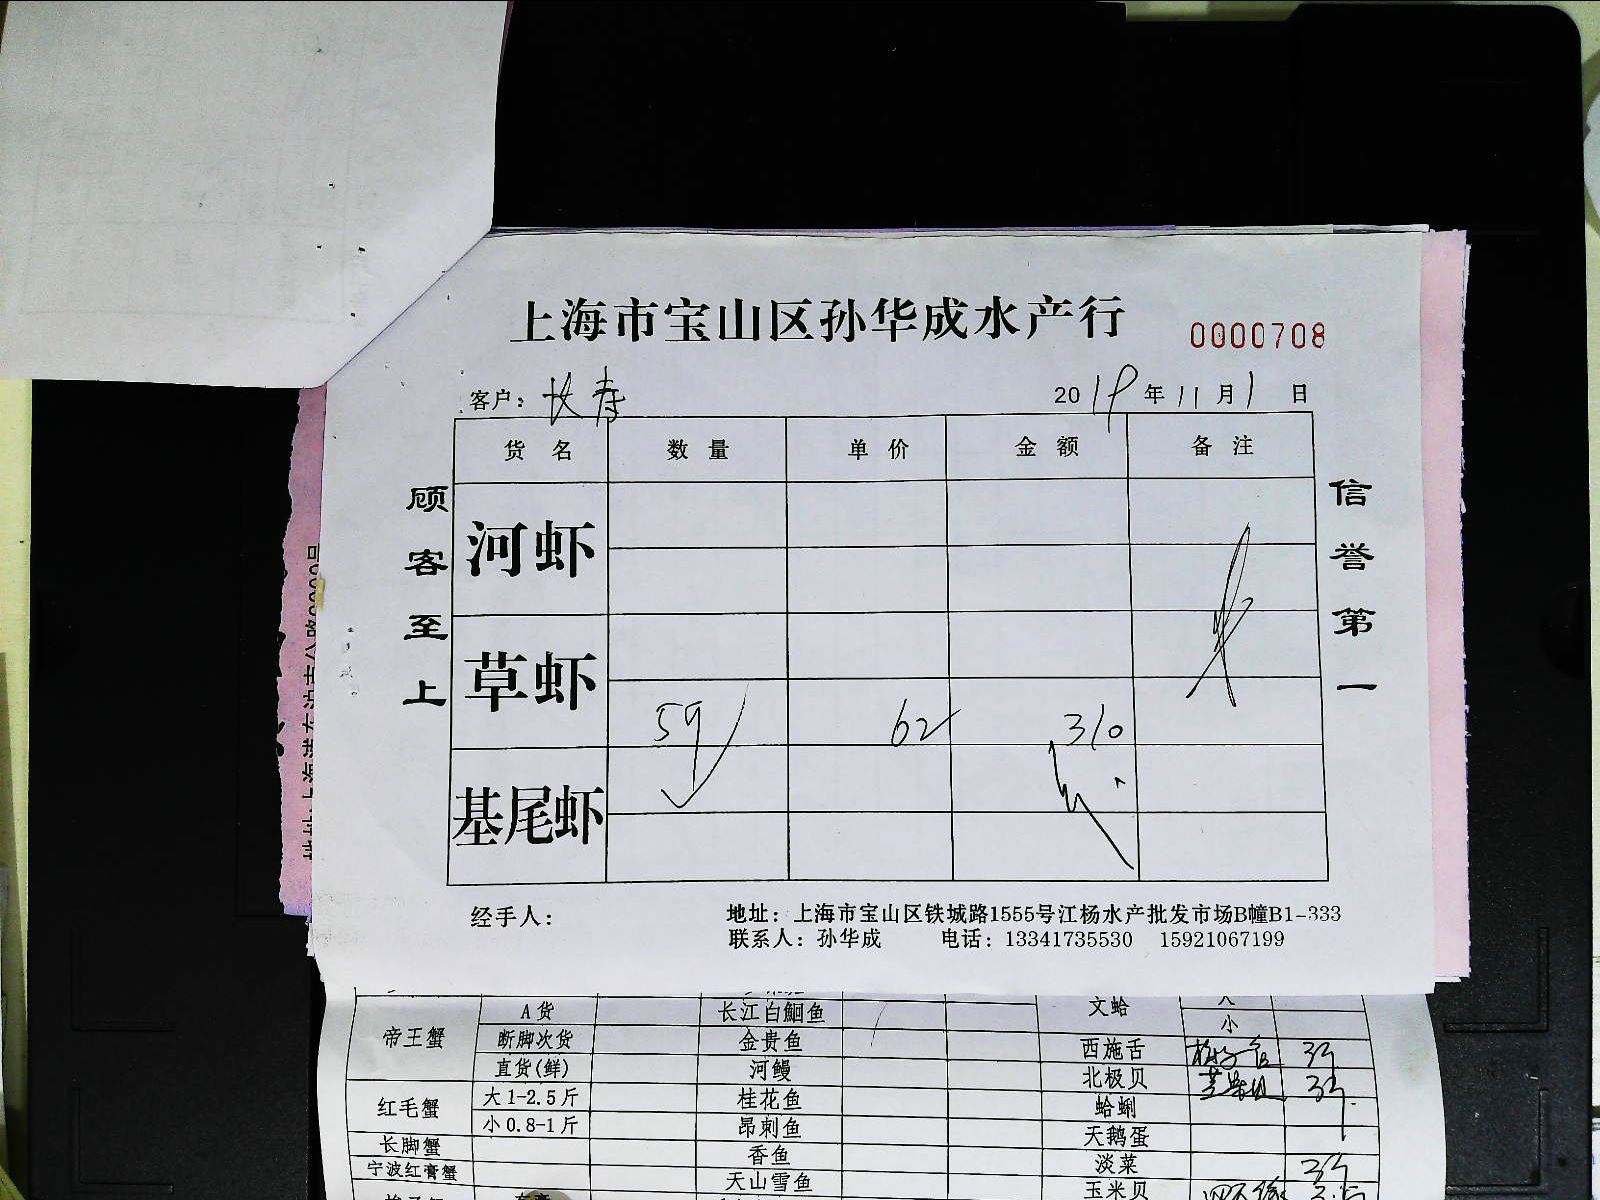 上海市宝山区孙华成水产行
0000708
客户：长寿
2019年11月1日
货名 数量 单价 金额 备注
河虾
草虾 62 310
基尾虾
顾客至上
信誉第一
经手人：
地址：上海市宝山区铁城路1555号江杨水产批发市场B幢B1-333
联系人：孙华成 电话：13341735530 15921067199
帝王蟹 A货 长江白鮰鱼 文蛤
小
断脚次货 金贵鱼 西施舌
直货(鲜) 河鳗 北极贝
红毛蟹 大1-2.5斤 桂花鱼 蛤蜊
小0.8-1斤 昂刺鱼 天鹅蛋
长脚蟹 香鱼 淡菜
宁波红膏蟹 天山雪鱼 玉米贝